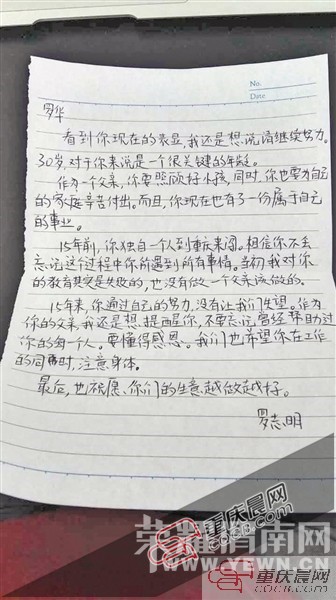 No.
Date
罗华
看到你现在的表显,我还是想说请继续努力。
30岁,对于你来说是一个很关键的年龄。
作为一个父亲,你要照顾好小孩,同时,你也要为自己
的家庭辛苦付出。而且,你现在也有了一份属于自己
的事业。
15年前,你独自一个人到重庆来闯。相信你不会
忘记这个过程中你所遇到所有事情。当初我对你
的教育其实是失败的,也没有做一个父亲该做的。
15年来,你通过自己的努力,没有让我们失望。作为
你的父亲,我还是想提醒你,不要忘记曾经帮助过
你的每一个人。要懂得感恩。我们也希望你在工作
的同时时,注意身体。
最后,也祝愿,你们的生意越做越好。
罗志明
重庆晨网
CQCB.COM
荣耀渭南网
WWW.YEWN.CN
重庆晨网
CQCB.COM